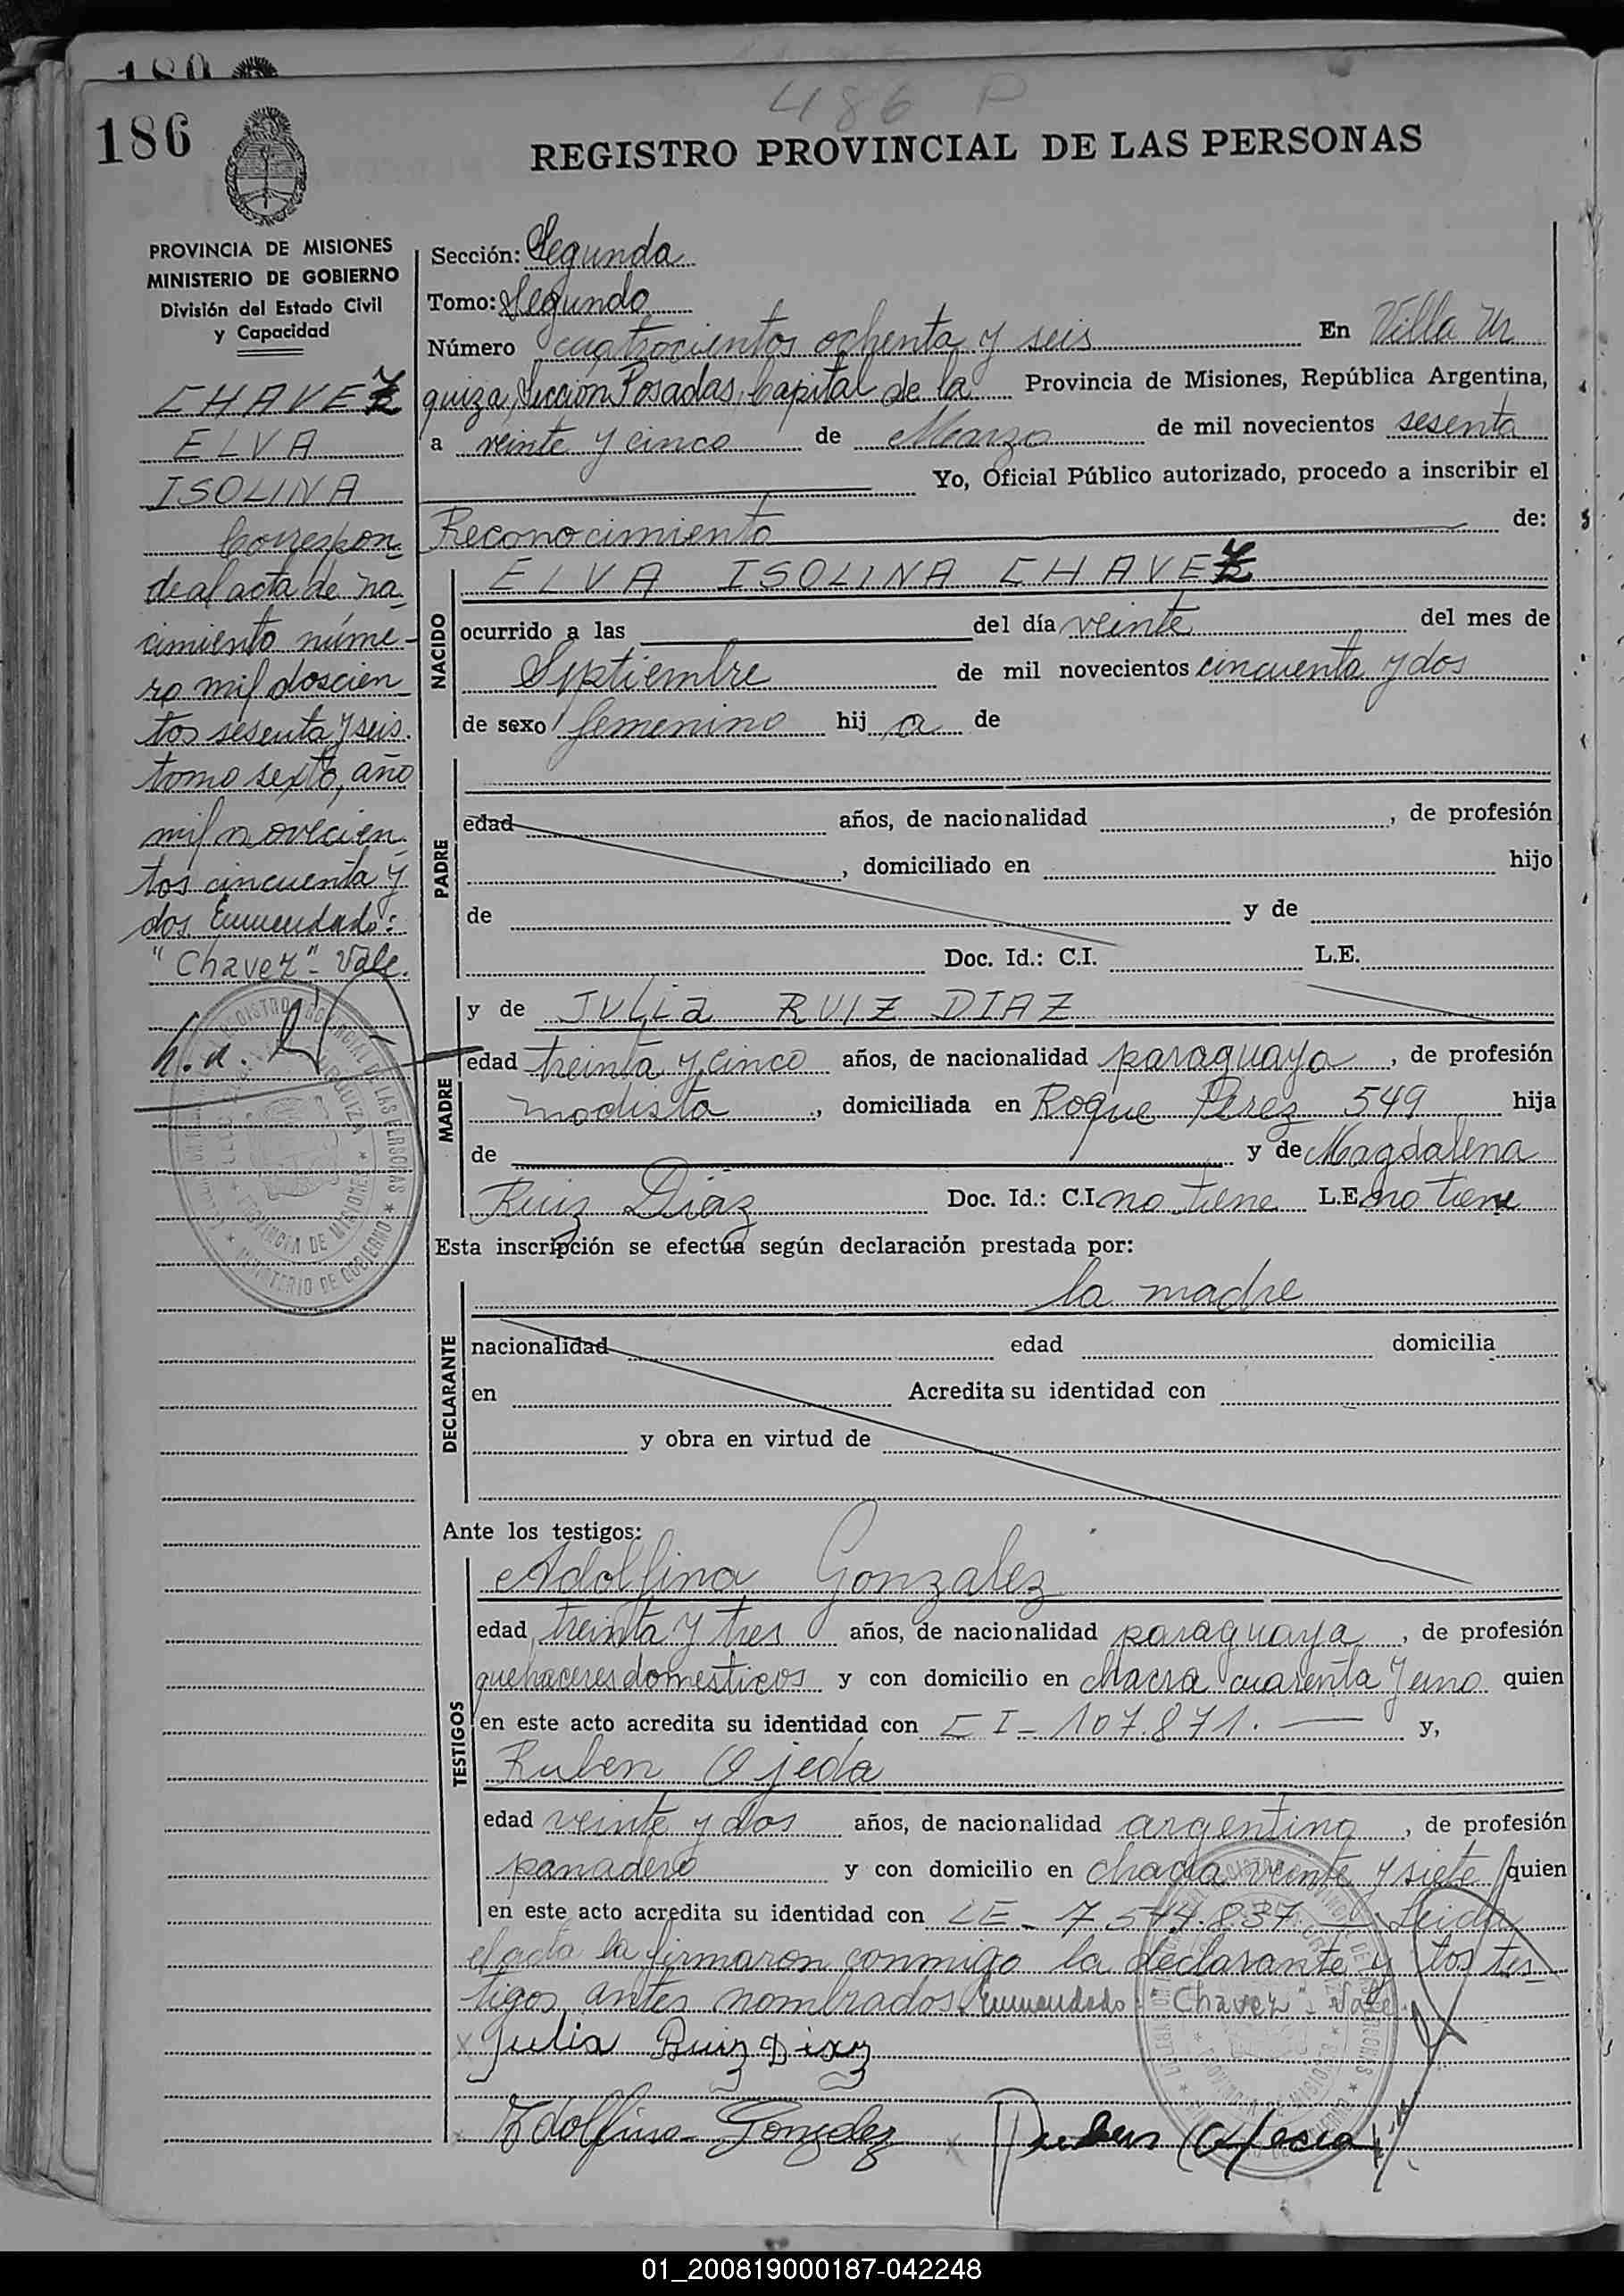 180
486 P
186
REGISTRO PROVINCIAL DE LAS PERSONAS
PROVINCIA DE MISIONES
MINISTERIO DE GOBIERNO
División del Estado Civil
y Capacidad
CHAVEZ
ELVA
ISOLINA
Correspon
de al acta de na
cimiento núme-
ro mil doscien
tos sesenta y seis.
tomo sexto, año
mil novecien
tos cincuenta y
dos Enmendado:
"Chavez"- Vale.
Sección: Segunda
Tomo: Segundo
Número cuatrocientos ochenta y seis En Villa Ur
quiza, Sección Posadas, Capital de la Provincia de Misiones, República Argentina,
a veinte y cinco de Marzo de mil novecientos sesenta
Yo, Oficial Público autorizado, procedo a inscribir el
Reconocimiento de:
NACIDO
ELVA ISOLINA CHAVEZ
ocurrido a las del día veinte del mes de
Septiembre de mil novecientos cincuenta y dos
de sexo femenino hij a de
PADRE
edad años, de nacionalidad , de profesión
, domiciliado en hijo
de y de
Doc. Id.: C.I. L.E.
MADRE
y de Julia RUIZ DIAZ
edad treinta y cinco años, de nacionalidad paraguaya , de profesión
modista , domiciliada en Roque Perez 549 hija
de y de Magdalena
Ruiz Diaz Doc. Id.: C.I. no tiene L.E. no tiene
Esta inscripción se efectúa según declaración prestada por:
DECLARANTE
la madre
nacionalidad edad domicilia
en Acredita su identidad con
y obra en virtud de
Ante los testigos:
TESTIGOS
Adolfina Gonzalez
edad treinta y tres años, de nacionalidad paraguaya , de profesión
quehaceres domesticos y con domicilio en chacra cuarenta y uno quien
en este acto acredita su identidad con CI - 107.871. y,
Ruben Ojeda
edad veinte y dos años, de nacionalidad argentino , de profesión
panadero y con domicilio en chacra veinte y siete quien
en este acto acredita su identidad con LE - 7.544.837 - Leida
el acta la firmaron conmigo la declarante y los tes
tigos antes nombrados. Enmendado: "Chavez"- Vale.
Julia Ruiz Diaz
Adolfina Gonzalez Ruben Ojeda
01_200819000187-042248